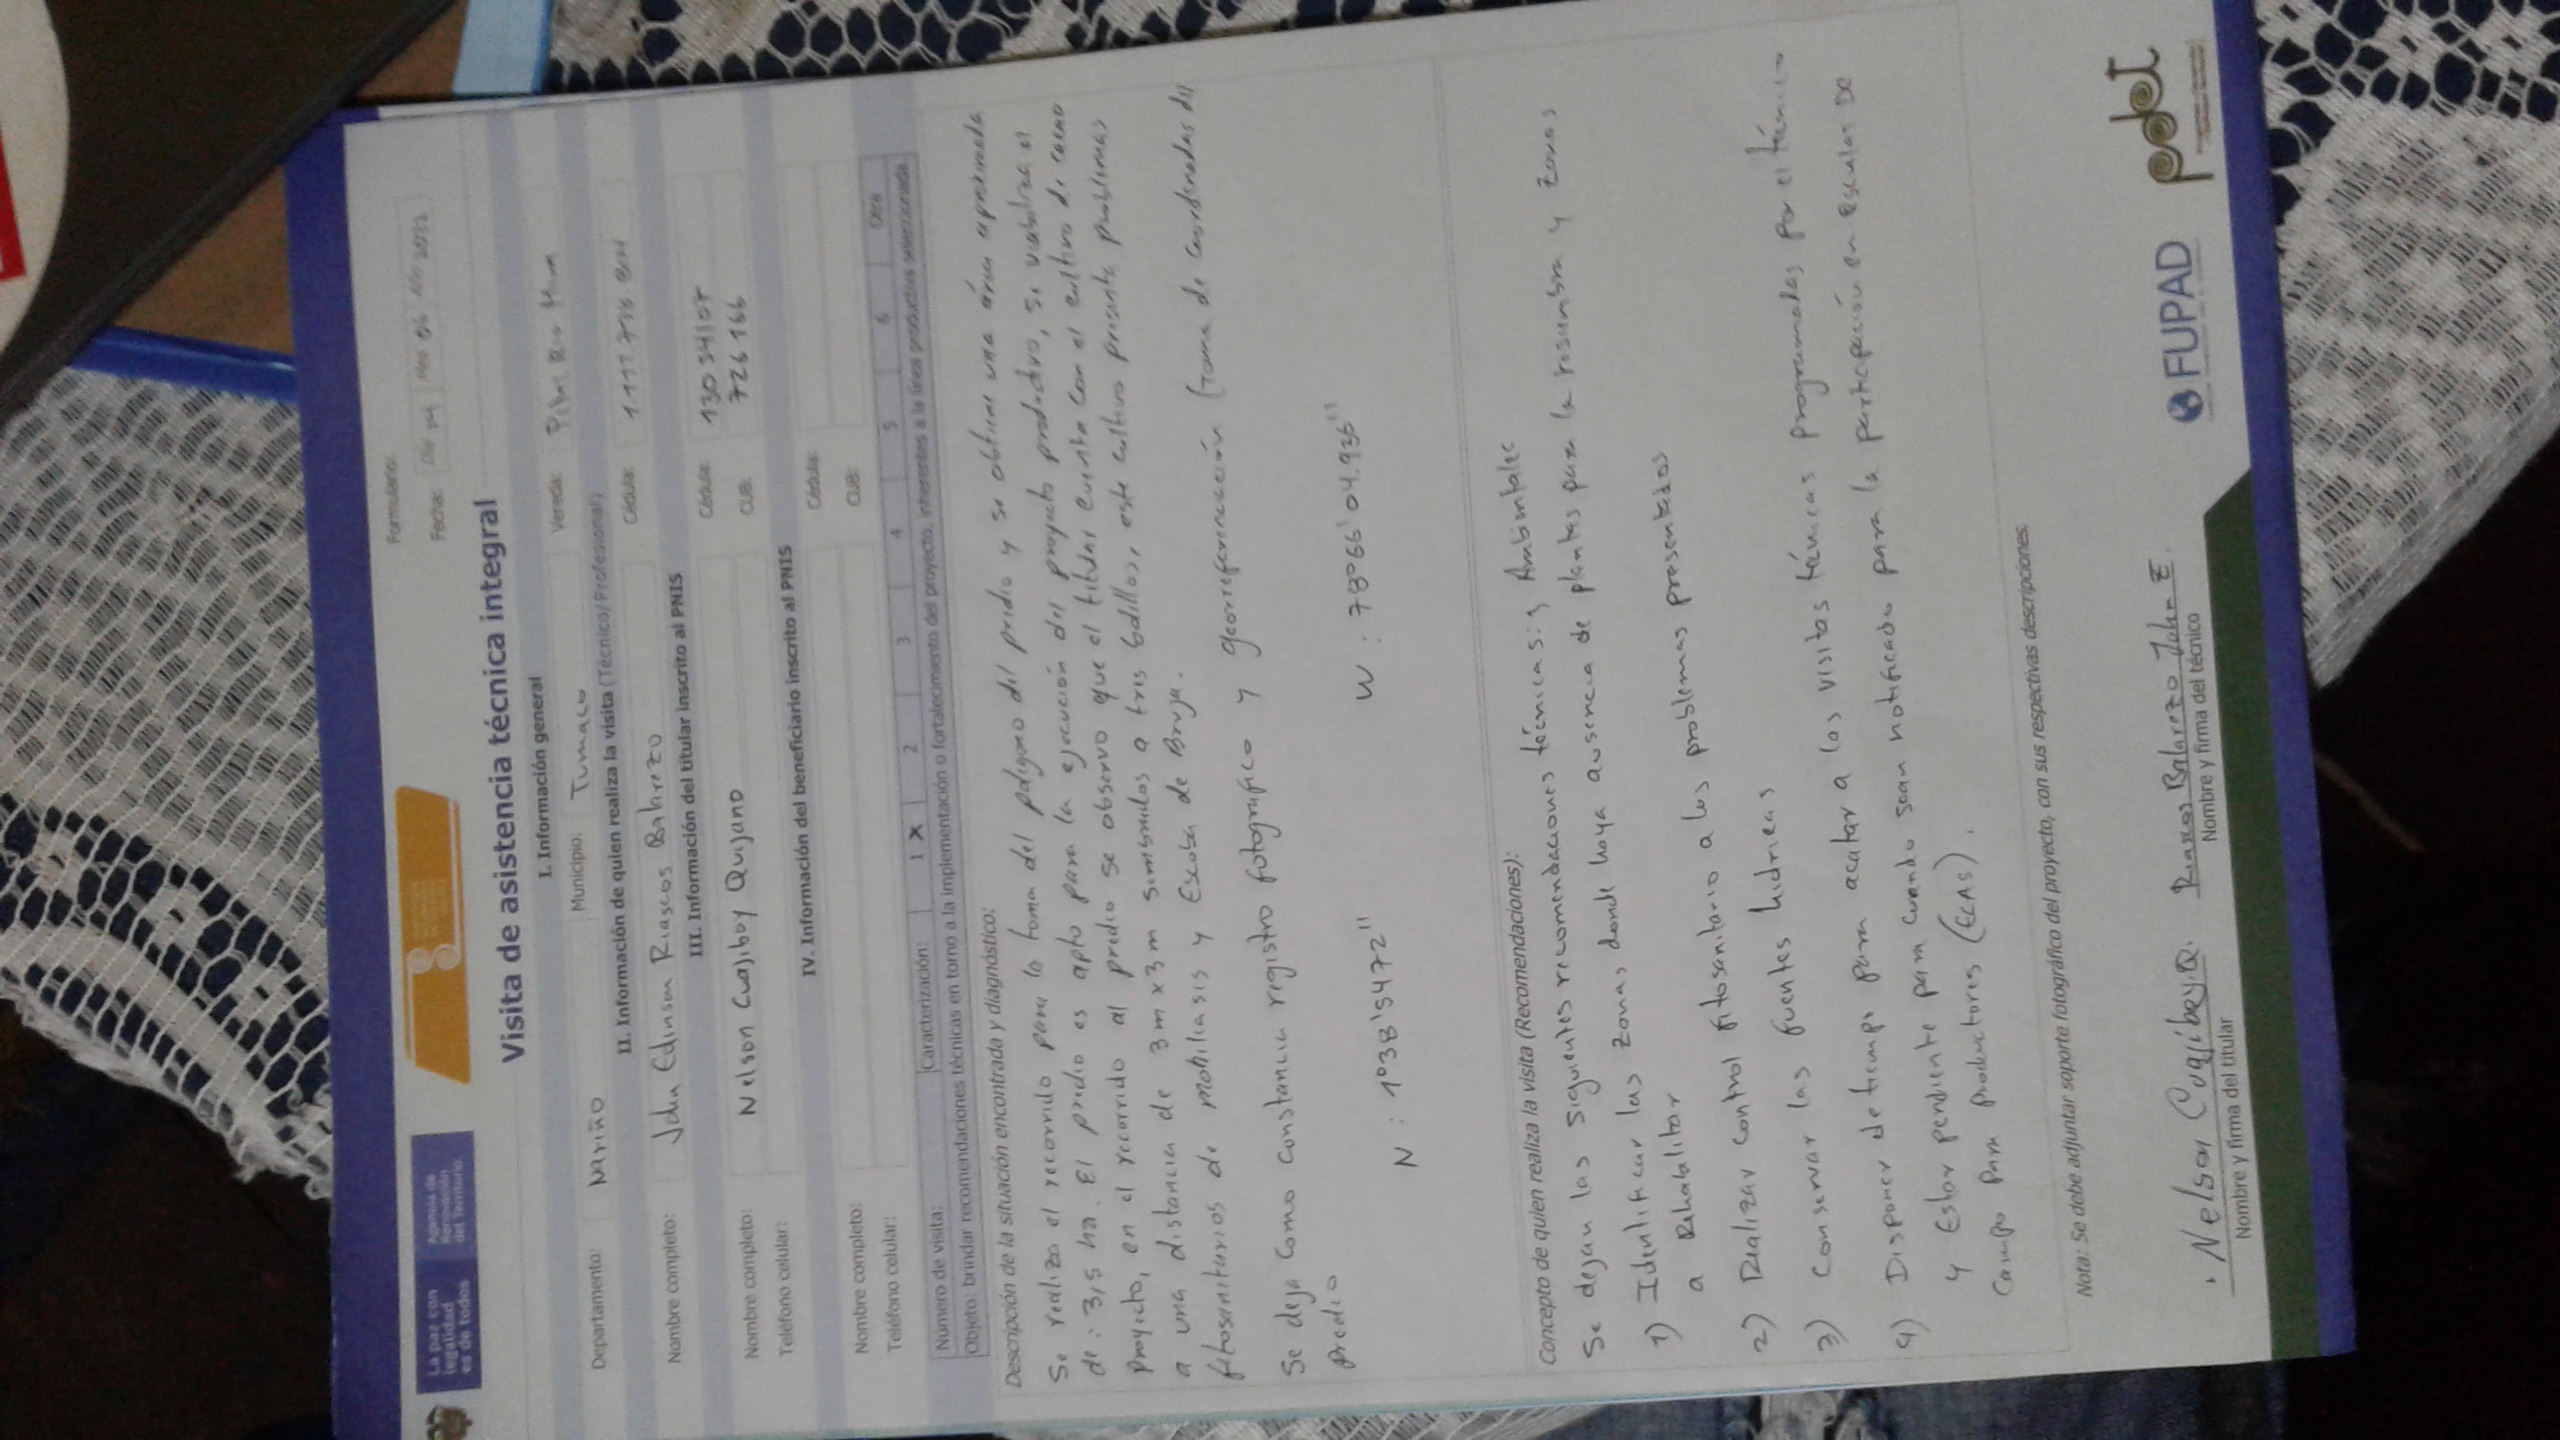 La paz con
legalidad
es de todos
Agencia de
Renovación
del Territorio
Formulario:
Fecha: Día 14 Mes 06 Año 2022
Visita de asistencia técnica integral
I. Información general
Departamento: Nariño Municipio: Tumaco Vereda:
II. Información de quien realiza la visita (Técnico/Profesional)
Nombre completo: John Edinson Riascos Balarezo Cédula:
III. Información del titular inscrito al PNIS
Nombre completo: Nelson Cuajiboy Quijano Cédula: 13034107
Teléfono celular: CUB: 726166
IV. Información del beneficiario inscrito al PNIS
Nombre completo: Cédula:
Teléfono celular: CUB:
Número de visita: Caracterización: 1 X 2 3 4 5 6 Otra
Objeto: brindar recomendaciones técnicas en torno a la implementación o fortalecimiento del proyecto, inherentes a la línea productiva seleccionada
Descripción de la situación encontrada y diagnóstico:
Se realiza el recorrido para la toma del poligono del predio y se obtiene una área aproximada
de: 3,5 ha. El predio es apto para la ejecución del proyecto productivo, se viabiliza el
Proyecto, en el recorrido al predio se observo que el titular cuenta con el cultivo de cacao
a una distancia de 3m x 3m sembrados a tres bolillos, este cultivo presenta problemas
fitosanitarios de moniliasis y Escoba de Bruja.
Se deja como constancia registro fotografico y georreferenciación (toma de coordenadas del
predio
N: 1°38'54.72" W: 78°66'04.936"
Concepto de quien realiza la visita (Recomendaciones):
Se dejan las siguientes recomendaciones técnicas: y Ambientales
1) Identificar las zonas donde haya ausencia de plantas para la resiembra y zonas
a Rehabilitar
2) Realizar control fitosanitario a los problemas presentados
3) Conservar las fuentes hidricas
4) Disponer de tiempo para acatar a las visitas técnicas programadas por el técnico
y Estar pendiente para cuando sean notificado para la participación en Escuelas De
Campo para productores (ECAS).
Nota: Se debe adjuntar soporte fotográfico del proyecto, con sus respectivas descripciones.
Nelson Cuajiboy.Q. Riascos Balarezo John E.
Nombre y firma del titular Nombre y firma del técnico
FUPAD
pdet